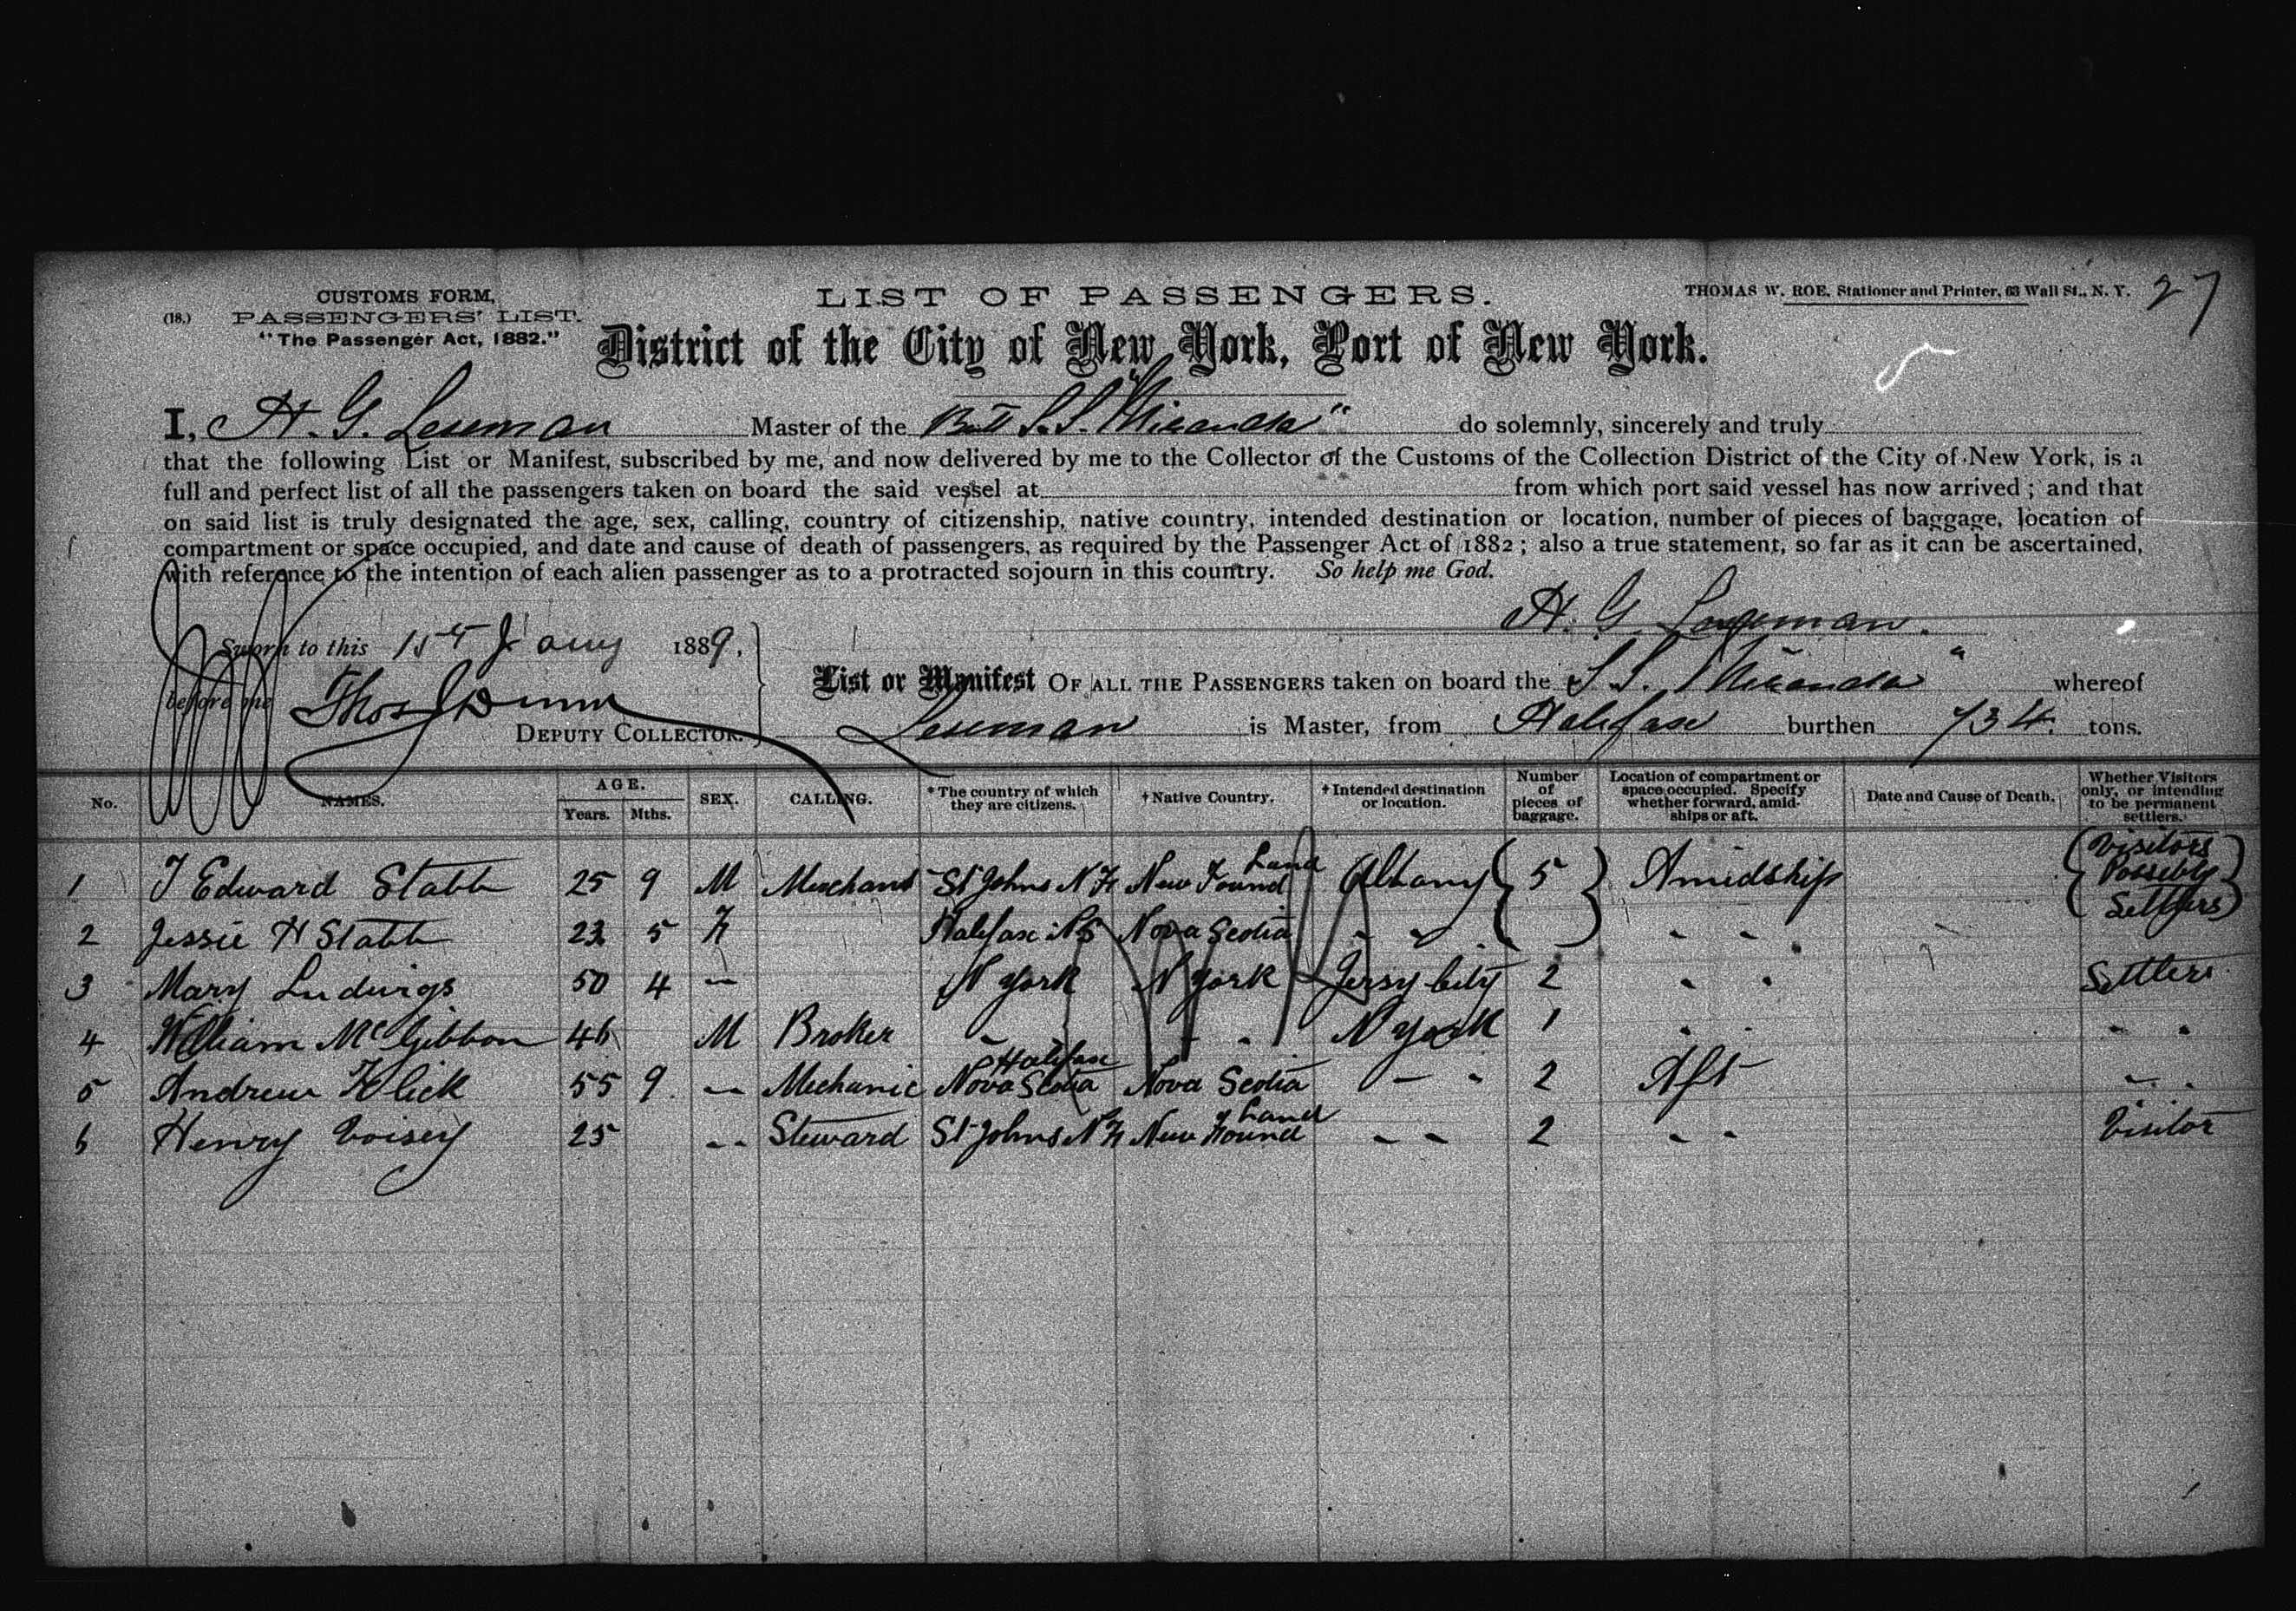 CUSTOMS FORM,
(18.) PASSENGERS' LIST.
"The Passenger Act, 1882."
LIST OF PASSENGERS.
THOMAS W. ROE, Stationer and Printer, 63 Wall St., N. Y. 27
District of the City of New York, Port of New York.
I, H. G. Leseman Master of the S.S. "Miranda" do solemnly, sincerely and truly
that the following List or Manifest, subscribed by me, and now delivered by me to the Collector of the Customs of the Collection District of the City of New York, is a
full and perfect list of all the passengers taken on board the said vessel at from which port said vessel has now arrived; and that
on said list is truly designated the age, sex, calling, country of citizenship, native country, intended destination or location, number of pieces of baggage, location of
compartment or space occupied, and date and cause of death of passengers, as required by the Passenger Act of 1882; also a true statement, so far as it can be ascertained,
with reference to the intention of each alien passenger as to a protracted sojourn in this country. So help me God.
H. G. Leseman
Sworn to this 15th Jany 1889,
before me Thos J Dunn
DEPUTY COLLECTOR.
List or Manifest OF ALL THE PASSENGERS taken on board the S. S. Miranda" whereof
Leseman is Master, from Halifax burthen 734 tons.
No. NAMES. AGE. Years. Mths. SEX. CALLING. *The country of which they are citizens. †Native Country. †Intended destination or location. Number of pieces of baggage. Location of compartment or space occupied. Specify whether forward, amidships or aft. Date and Cause of Death. Whether Visitors only, or intending to be permanent settlers.
1 J Edward Stabb 25 9 M Merchant St Johns N F New Found Land Albany 5 Amidship Visitors Possibly Settlers
2 Jessie H Stabb 23 5 F Halifax N S Nova Scotia " " " "
3 Mary Ludwigs 50 4 — N York N York Jersy City 2 " " Settlers
4 William McGibbon 46 M Broker " " " N York 1 " " " "
5 Andrew Flick 55 9 — Mechanic Halifax Nova Scotia Nova Scotia — " 2 Aft — "
6 Henry Voisey 25 -- Steward St Johns N F New Found Land -- 2 -- Visitor